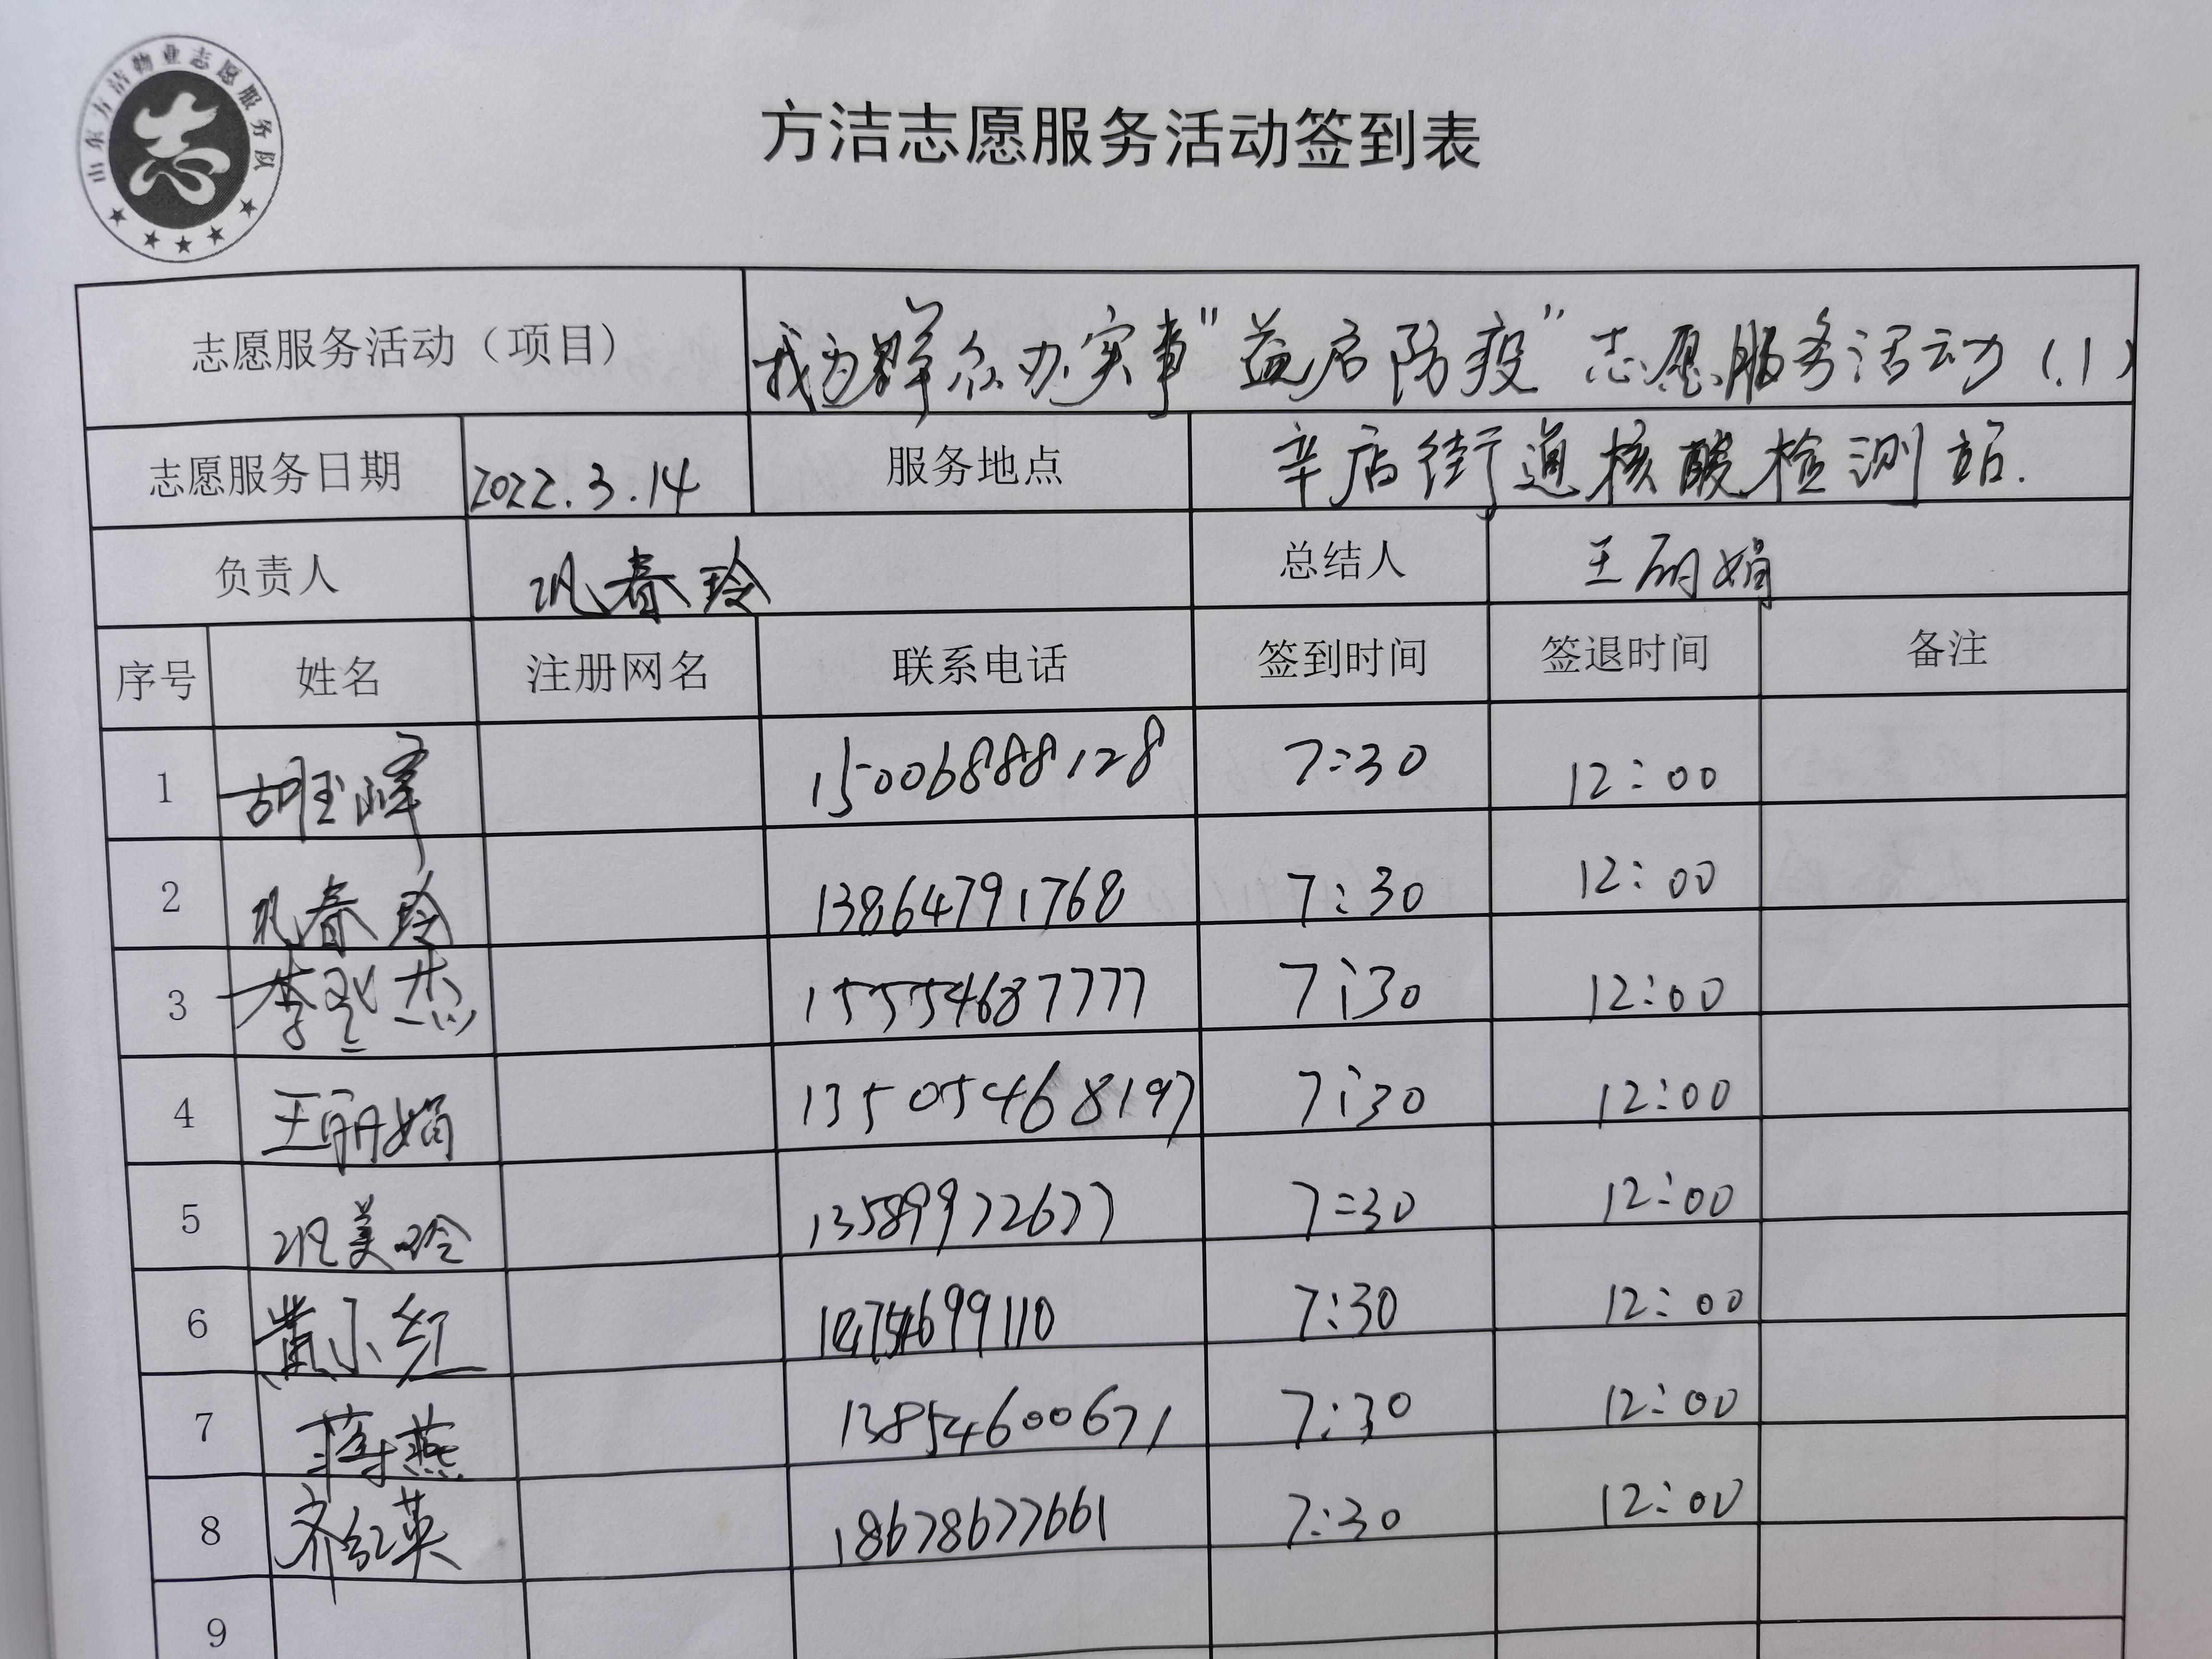 山东方洁物业志愿服务队
志
方洁志愿服务活动签到表
志愿服务活动（项目） 我为群众办实事"益启防疫"志愿服务活动（1）
志愿服务日期 2022.3.14 服务地点 辛店街道核酸检测站.
负责人 巩春玲 总结人 王丽娟
序号 姓名 注册网名 联系电话 签到时间 签退时间 备注
1 胡玉峰 15006888128 7:30 12:00
2 巩春玲 13864791768 7:30 12:00
3 李 杰 15554687777 7:30 12:00
4 王丽娟 13505468197 7:30 12:00
5 巩美玲 13589972677 7:30 12:00
6 黄小红 7:30 12:00
7 蒋燕 13854600671 7:30 12:00
8 齐红英 18678677661 7:30 12:00
9